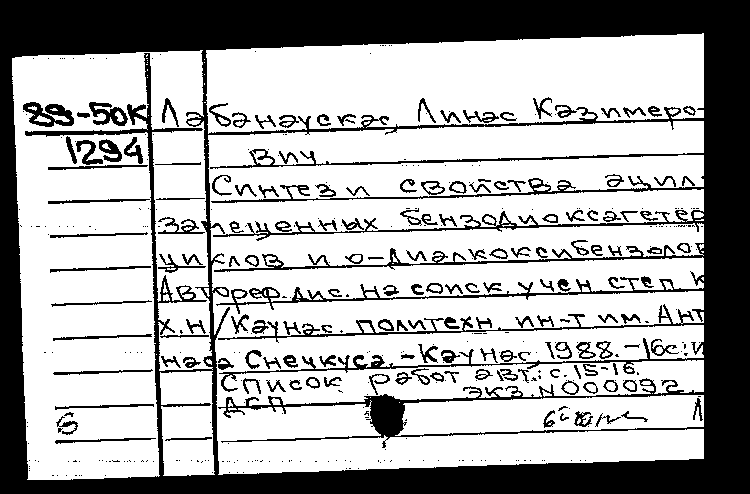 89-50К Лабанаускас, Линас Казимеро-
1294 вич.
Синтез и свойства ацил
замещенных бензодиоксагетер
циклов и о-диалкоксибензолов
Автореф. дис. на соиск. учен степ к
х.н/Каунас. политехн. ин-т им. Ант
наса Снечкуса.-Каунас, 1988.-16с:и
Список работ авт.: с. 15-16.
ДСП Экз. N000092.
б